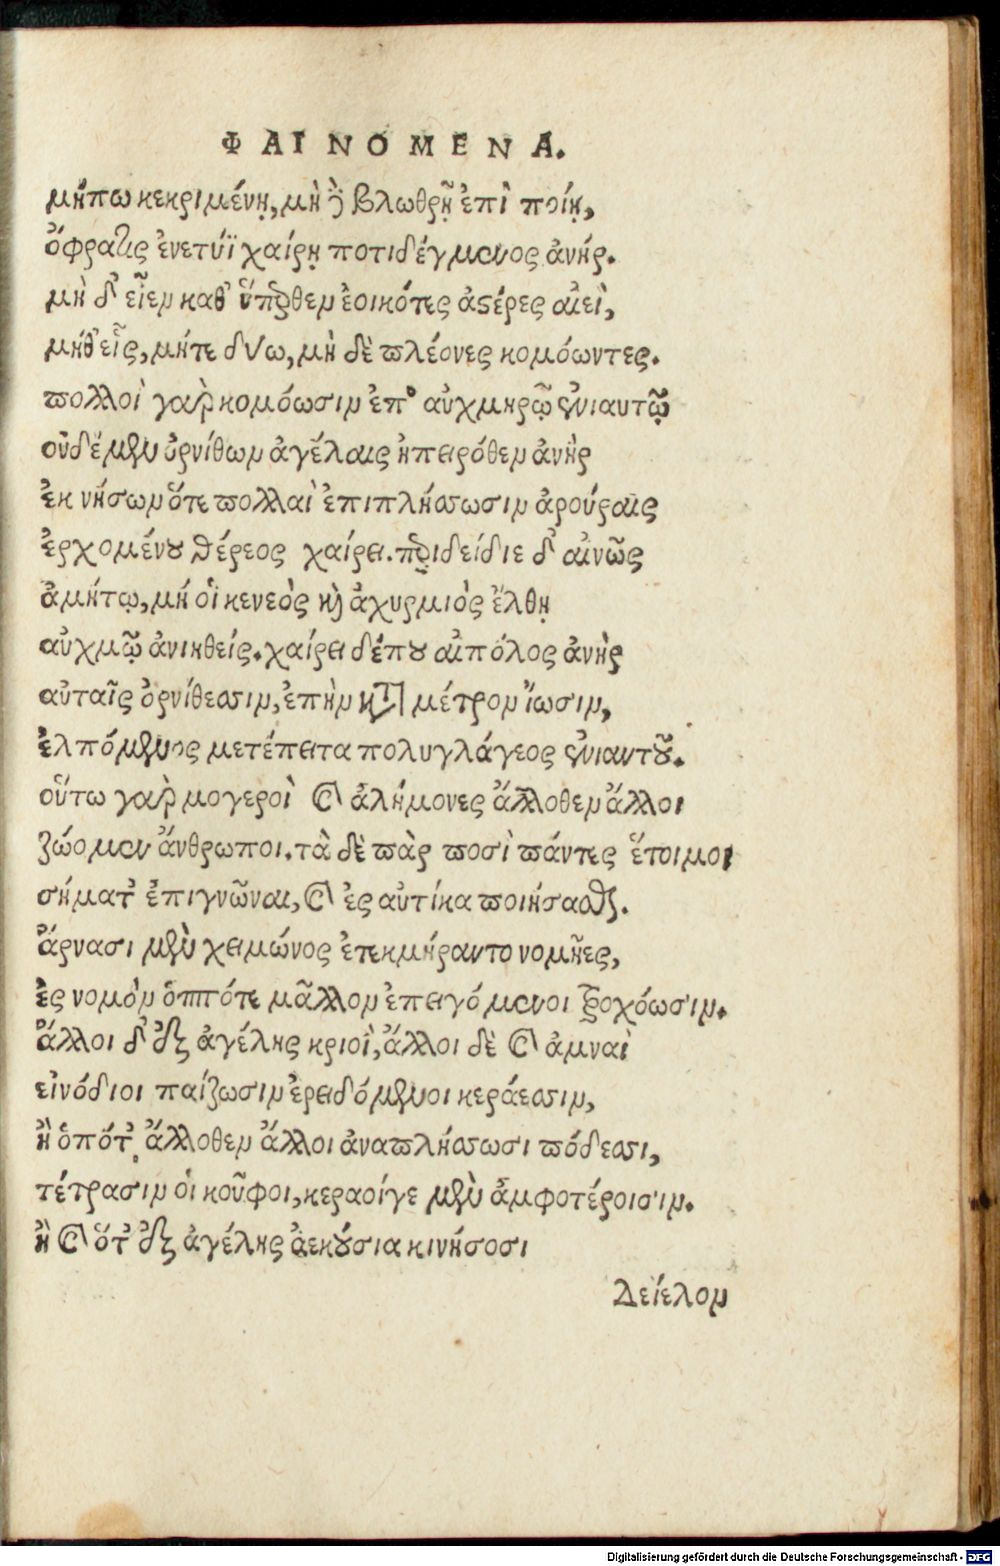 ΦΑΙΝΟΜΕΝΑ.
μήπω κεκριμένῃ, μὴ δὲ βλωθρῇ ἐπὶ ποίῃ,
ὄφρα τις ἐνετύϊ χαίρῃ ποτιδέγμενος ἀνήρ.
μὴ δ' εἶεν καθ' ὕπερθεν ἐοικότες ἀστέρες αἰεὶ,
μήθ' εἷς, μήτε δύω, μὴ δὲ πλέονες κομόωντες.
πολλοὶ γὰρ κομόωσιν ἐπ' αὐχμηρῷ ἐνιαυτῷ
οὐδέ μὲν ὀρνίθων ἀγέλαις ἠπειρόθεν ἀνὴρ
ἐκ νήσων ὅτε πολλαὶ ἐπιπλήσσωσιν ἀρούραις
ἐρχομένου θέρεος χαίρει. περιδείδιε δ' αἰνῶς
ἀμήτῳ, μή οἱ κενεὸς καὶ ἀχυρμιὸς ἔλθῃ
αὐχμῷ ἀνιηθείς. χαίρει δέ που αἰπόλος ἀνὴρ
αὐταῖς ὀρνίθεσσιν, ἐπὴν κατὰ μέτρον ἴωσιν,
ἐλπόμενος μετέπειτα πολυγλάγεος ἐνιαυτοῦ.
οὕτω γὰρ μογεροὶ καὶ ἀλήμονες ἄλλοθεν ἄλλοι
ζώομεν ἄνθρωποι. τὰ δὲ πὰρ ποσὶ πάντες ἕτοιμοι
σήματ' ἐπιγνῶναι, καὶ ἐς αὐτίκα ποιήσασθαι.
ἄρνασι μὲν χειμώνος ἐτεκμήραντο νομῆες,
ἐς νομὸν ὁππότε μᾶλλον ἐπειγόμενοι τροχόωσιν.
ἄλλοι δ' ἐξ ἀγέλης κριοὶ, ἄλλοι δὲ καὶ ἀμναὶ
εἰνόδιοι παίζωσιν ἐρειδόμενοι κεράεσσιν,
ἢ ὁπότ' ἄλλοθεν ἄλλοι ἀναπλήσσωσι πόδεσσι,
τέτρασιν οἱ κοῦφοι, κεραοίγε μὲν ἀμφοτέροισιν.
ἢ καὶ ὅτ' ἐξ ἀγέλης ἀεκούσια κινήσοσι
Δείελον
Digitalisierung gefördert durch die Deutsche Forschungsgemeinschaft - DFG